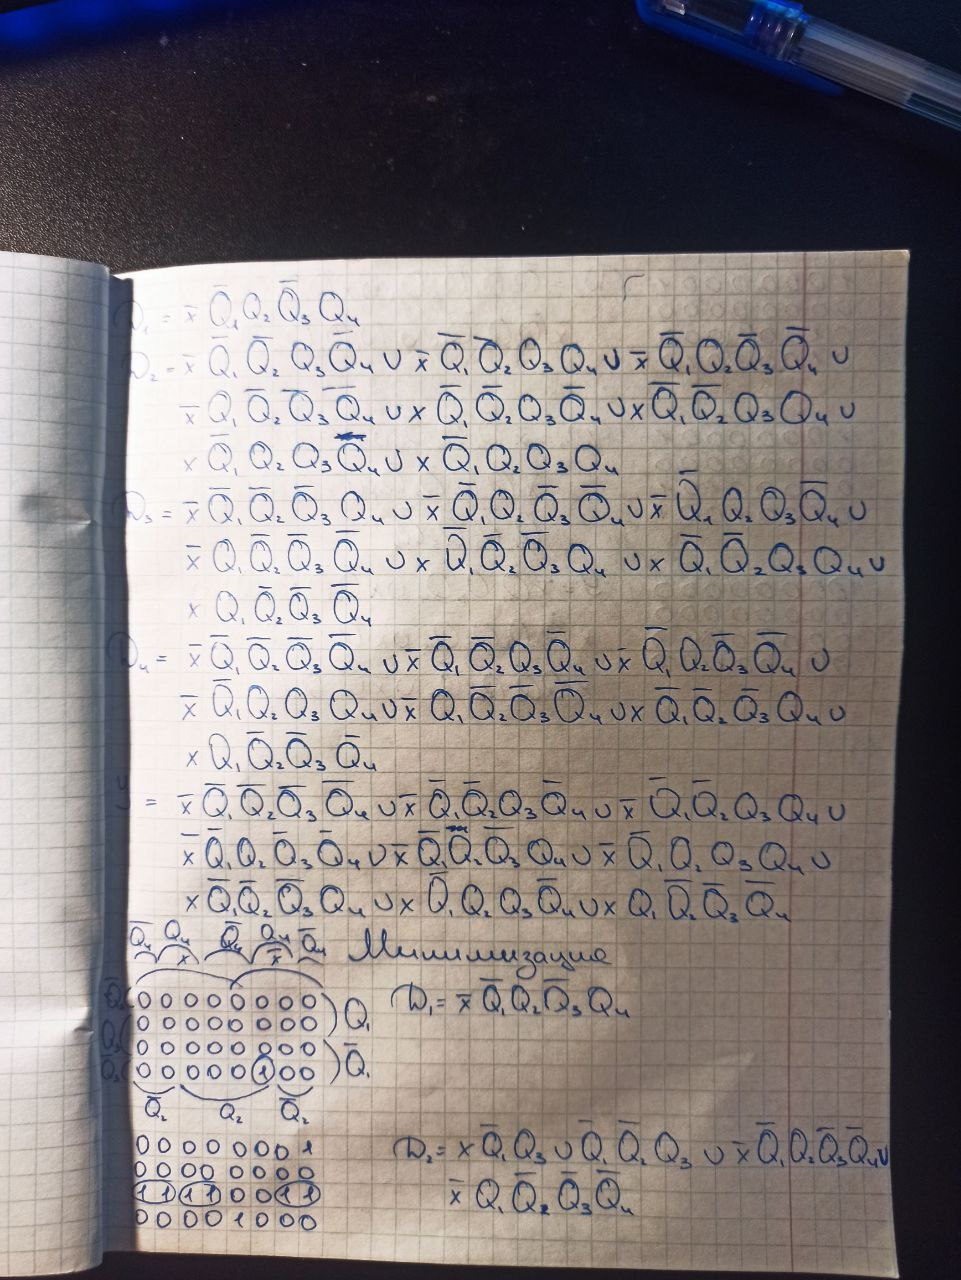 D₁ = x̄ Q̄₁ Q₂ Q̄₃ Q₄
D₂ = x̄ Q̄₁ Q̄₂ Q₃ Q̄₄ ∪ x̄ Q̄₁ Q̄₂ Q₃ Q₄ ∪ x̄ Q̄₁ Q₂ Q̄₃ Q̄₄ ∪
x̄ Q₁ Q̄₂ Q̄₃ Q̄₄ ∪ x Q̄₁ Q̄₂ Q₃ Q̄₄ ∪ x Q̄₁ Q̄₂ Q₃ Q₄ ∪
x Q̄₁ Q₂ Q₃ Q̄₄ ∪ x Q̄₁ Q₂ Q₃ Q₄
D₃ = x̄ Q̄₁ Q̄₂ Q̄₃ Q₄ ∪ x̄ Q̄₁ Q₂ Q̄₃ Q̄₄ ∪ x̄ Q̄₁ Q₂ Q₃ Q̄₄ ∪
x̄ Q₁ Q̄₂ Q̄₃ Q̄₄ ∪ x Q̄₁ Q̄₂ Q̄₃ Q₄ ∪ x Q̄₁ Q̄₂ Q₃ Q₄ ∪
x Q₁ Q̄₂ Q̄₃ Q̄₄
D₄ = x̄ Q̄₁ Q̄₂ Q̄₃ Q̄₄ ∪ x̄ Q̄₁ Q̄₂ Q₃ Q̄₄ ∪ x̄ Q̄₁ Q₂ Q̄₃ Q̄₄ ∪
x̄ Q̄₁ Q₂ Q₃ Q₄ ∪ x̄ Q₁ Q̄₂ Q̄₃ Q̄₄ ∪ x Q̄₁ Q̄₂ Q̄₃ Q₄ ∪
x Q₁ Q̄₂ Q̄₃ Q̄₄
y = x̄ Q̄₁ Q̄₂ Q̄₃ Q̄₄ ∪ x̄ Q̄₁ Q̄₂ Q₃ Q̄₄ ∪ x̄ Q̄₁ Q̄₂ Q₃ Q₄ ∪
x̄ Q̄₁ Q₂ Q̄₃ Q̄₄ ∪ x̄ Q̄₁ Q₂ Q̄₃ Q₄ ∪ x Q̄₁ Q₂ Q₃ Q₄ ∪
x Q̄₁ Q̄₂ Q̄₃ Q₄ ∪ x Q̄₁ Q₂ Q₃ Q̄₄ ∪ x Q₁ Q̄₂ Q̄₃ Q̄₄
Q̄₄ Q₄ Q̄₄ Q₄ Q̄₄ Минимизация
x x̄
Q̄₃ 0 0 0 0 0 0 0 0 Q₁ D₁ = x̄ Q̄₁ Q₂ Q̄₃ Q₄
Q₃ 0 0 0 0 0 0 0 0
0 0 0 0 0 0 0 0 Q̄₁
Q̄₃ 0 0 0 0 0 1 0 0
Q̄₂ Q₂ Q̄₂
0 0 0 0 0 0 0 1 D₂ = x Q̄₁ Q₃ ∪ Q̄₁ Q̄₂ Q₃ ∪ x̄ Q̄₁ Q₂ Q̄₃ Q̄₄ ∪
0 0 0 0 0 0 0 0
1 1 1 1 0 0 1 1 x̄ Q₁ Q̄₂ Q̄₃ Q̄₄
0 0 0 0 1 0 0 0